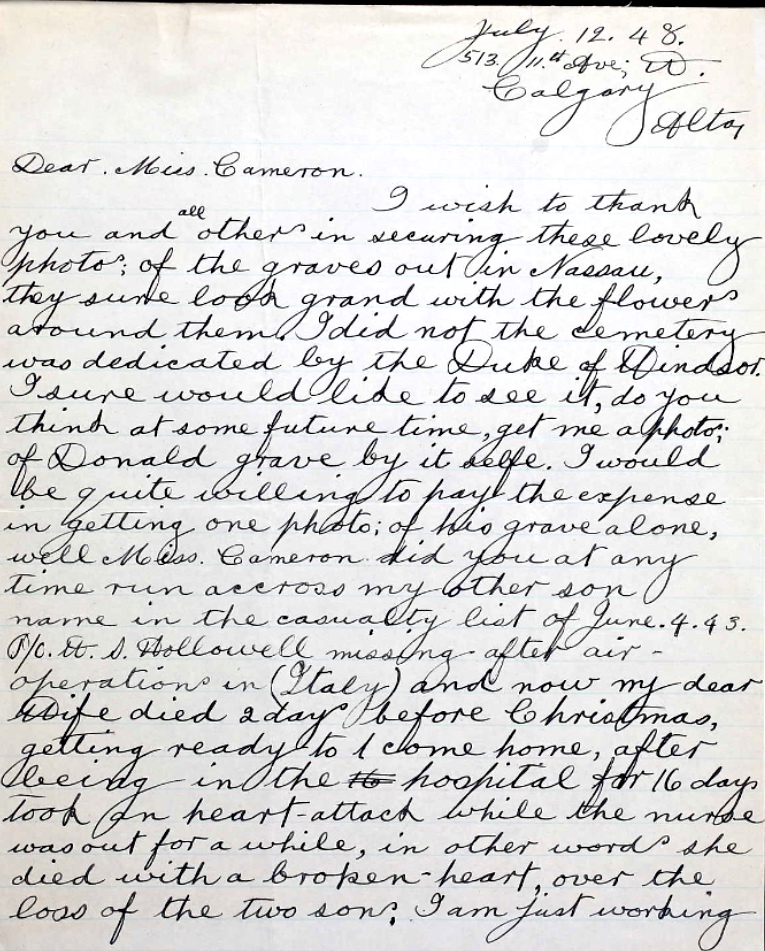 July. 12. 48.
513. 11.th Ave; W.
Calgary
Alta,
Dear. Miss. Cameron.
I wish to thank
you and all others in securing these lovely
photos; of the graves out in Nassau,
they sure look grand with the flowers
around them. I did not the cemetery
was dedicated by the Duke of Windsor.
I sure would lide to see it, do you
think at some future time, get me a photo;
of Donald grave by it selfe. I would
be quite willing to pay the expense
in getting one photo; of his grave alone,
well Miss. Cameron did you at any
time run accross my other son
name in the casualty list of June. 4. 43.
P/O. W. S. Hollowell missing after air-
operations in (Italy) and now my dear
Wife died 2 days before Christmas,
getting ready to come home, after
being in the 16 hospital for 16 days
took an heart-attack while the nurse
was out for a while, in other words she
died with a broken-heart, over the
loss of the two sons; I am just working